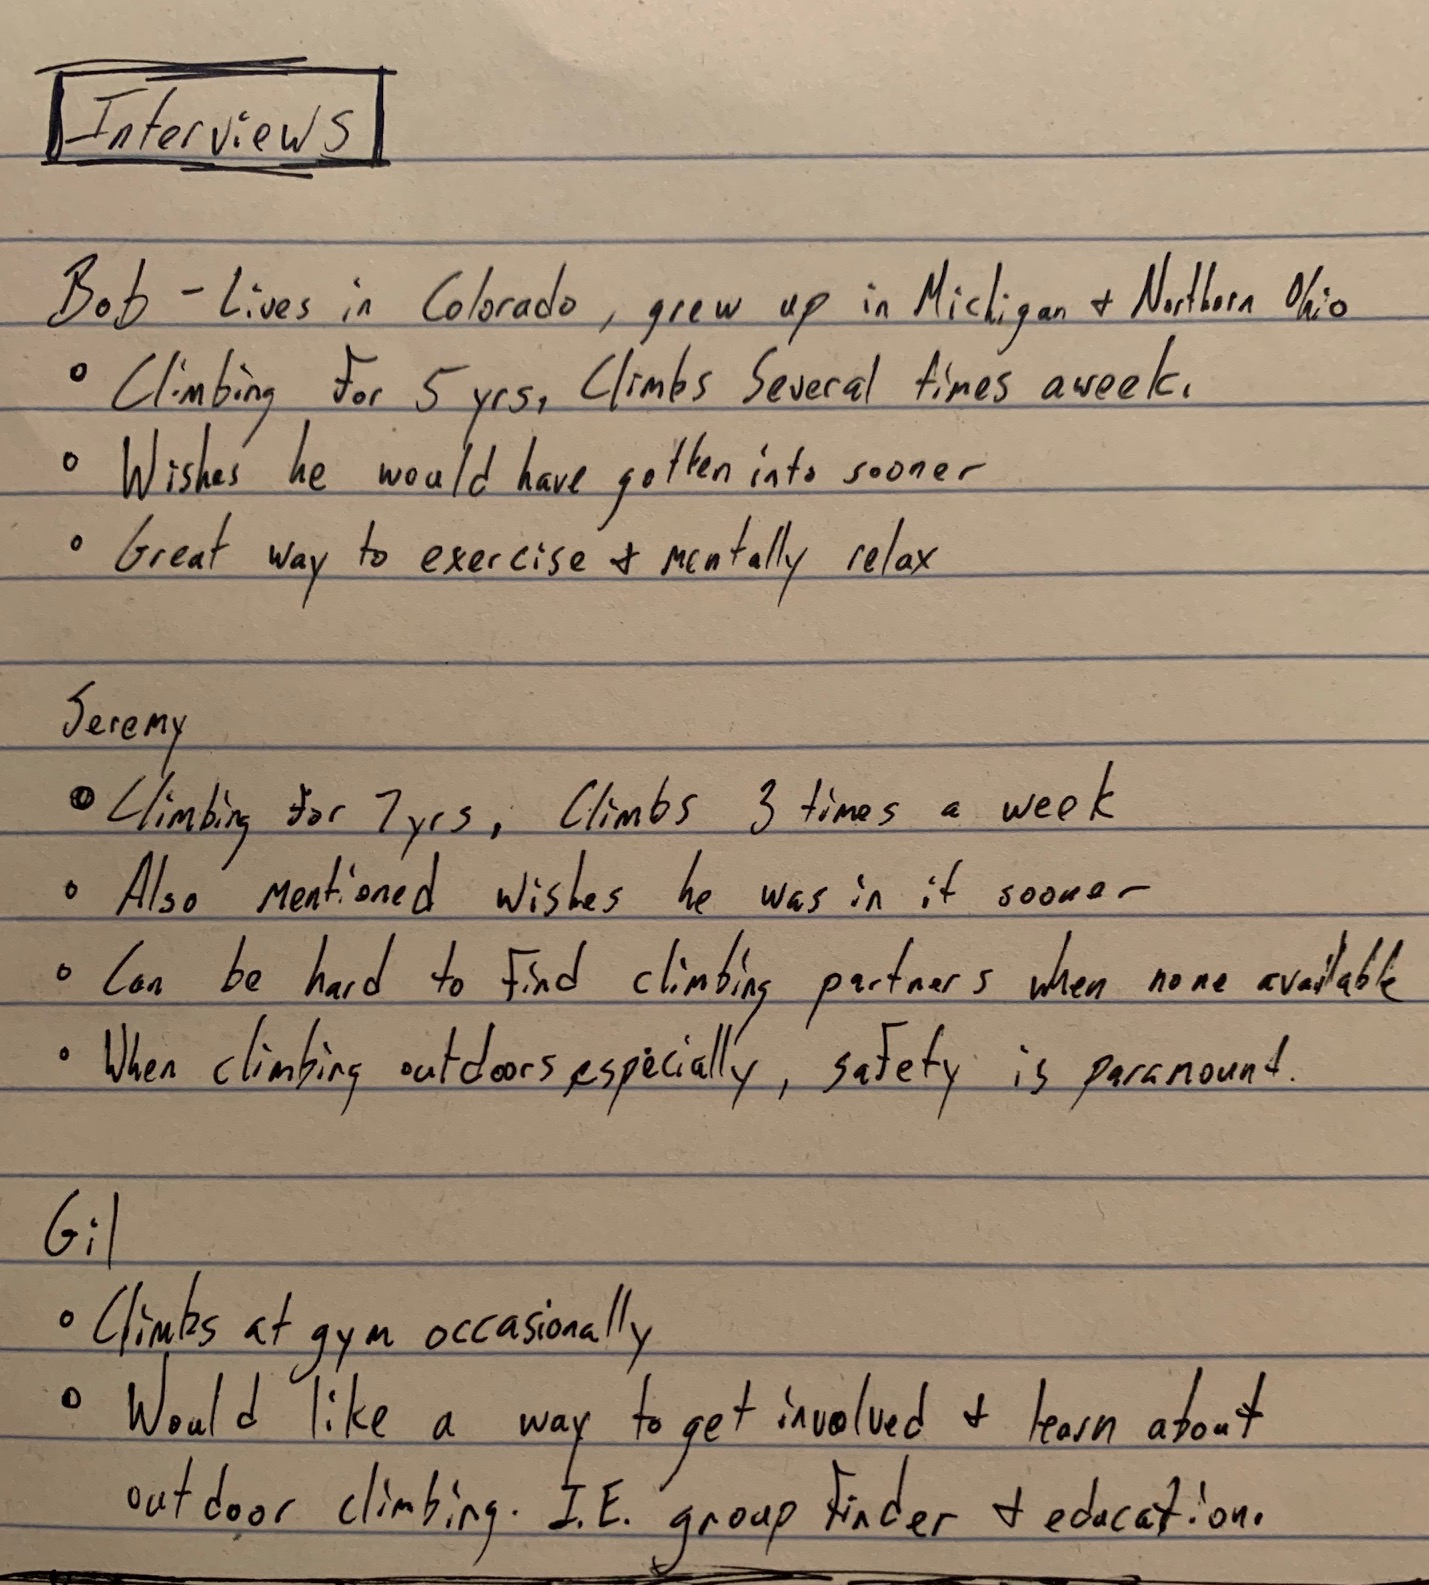 Interviews
Bob - Lives in Colorado, grew up in Michigan & Northern Ohio
• Climbing for 5 yrs, Climbs Several times a week.
• Wishes he would have gotten into sooner
• Great way to exercise & mentally relax
Jeremy
• Climbing for 7 yrs, Climbs 3 times a week
• Also mentioned wishes he was in it sooner
• Can be hard to find climbing partners when none available
• When climbing outdoors especially, safety is paramount.
Gil
• Climbs at gym occasionally
• Would like a way to get involved & learn about
outdoor climbing. I.E. group finder & education.